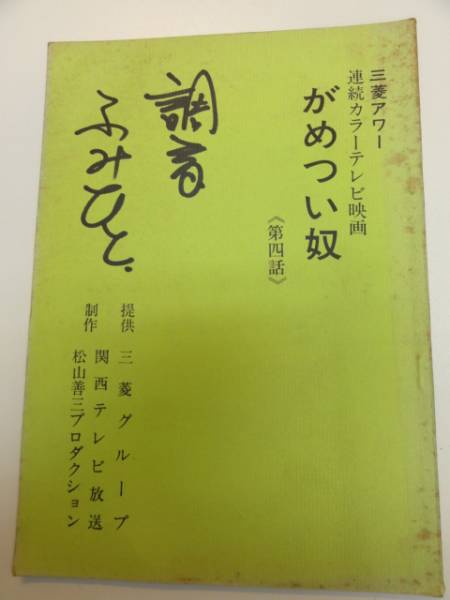 三菱アワー
連続カラーテレビ映画
がめつい奴
《第四話》
調音
ふみひと.
提供 三菱グループ
制作 関西テレビ放送
松山善三プロダクション